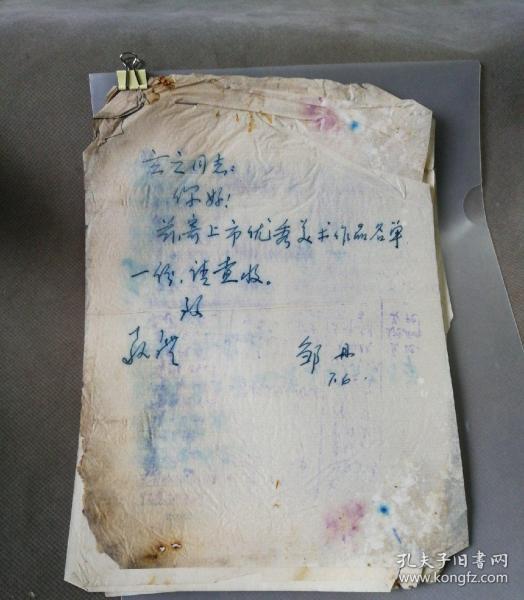 立立同志：
你好！
兹寄上市优秀美术作品名单
一份，请查收。
致
敬礼
邹丹
7.6.
孔夫子旧书网
www.kongfz.com